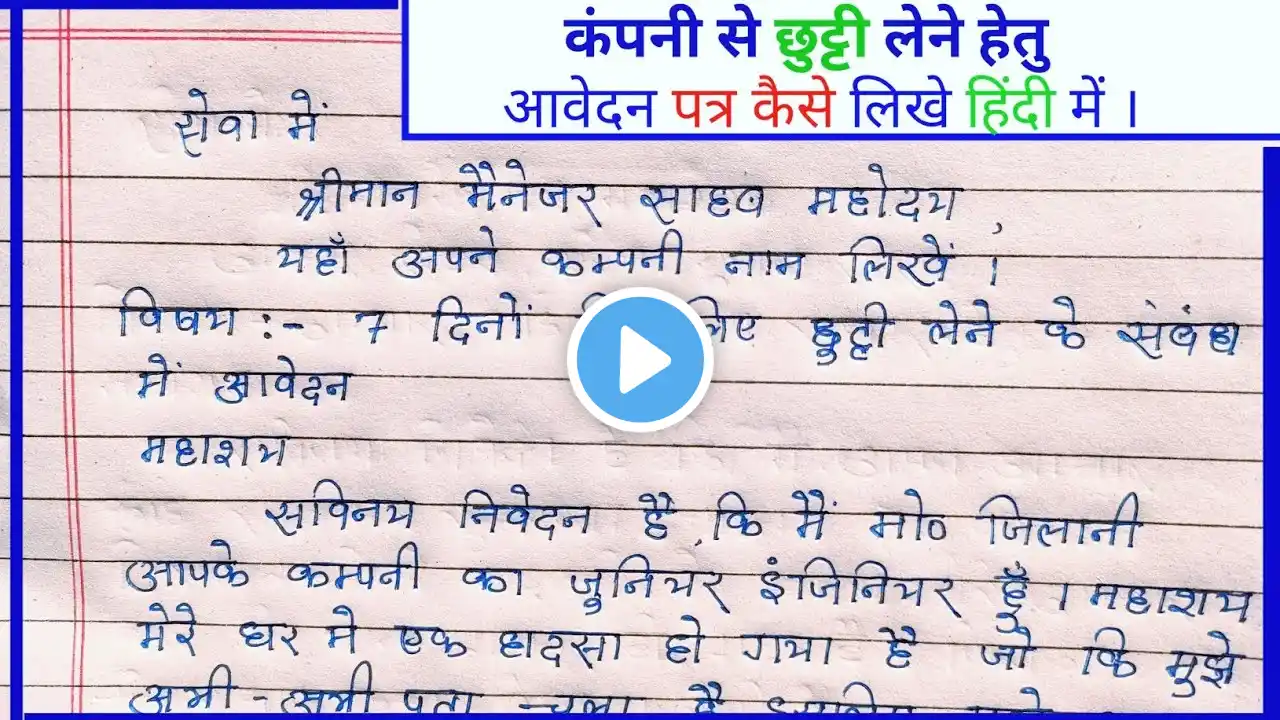 कंपनी से छुट्टी लेने हेतु
आवेदन पत्र कैसे लिखे हिंदी में ।
सेवा में
श्रीमान मैनेजर साहब महोदय ,
यहाँ अपने कम्पनी नाम लिखें ।
विषय :- 7 दिनों लिए छुट्टी लेने के संबंध
में आवेदन
महाशय
सविनय निवेदन है, कि मैं मो० जिलानी
आपके कम्पनी का जुनियर इंजिनियर हूँ । महाशय
मेरे घर मे एक हादसा हो गया है जो कि मुझे
अभी - अभी पता चला है